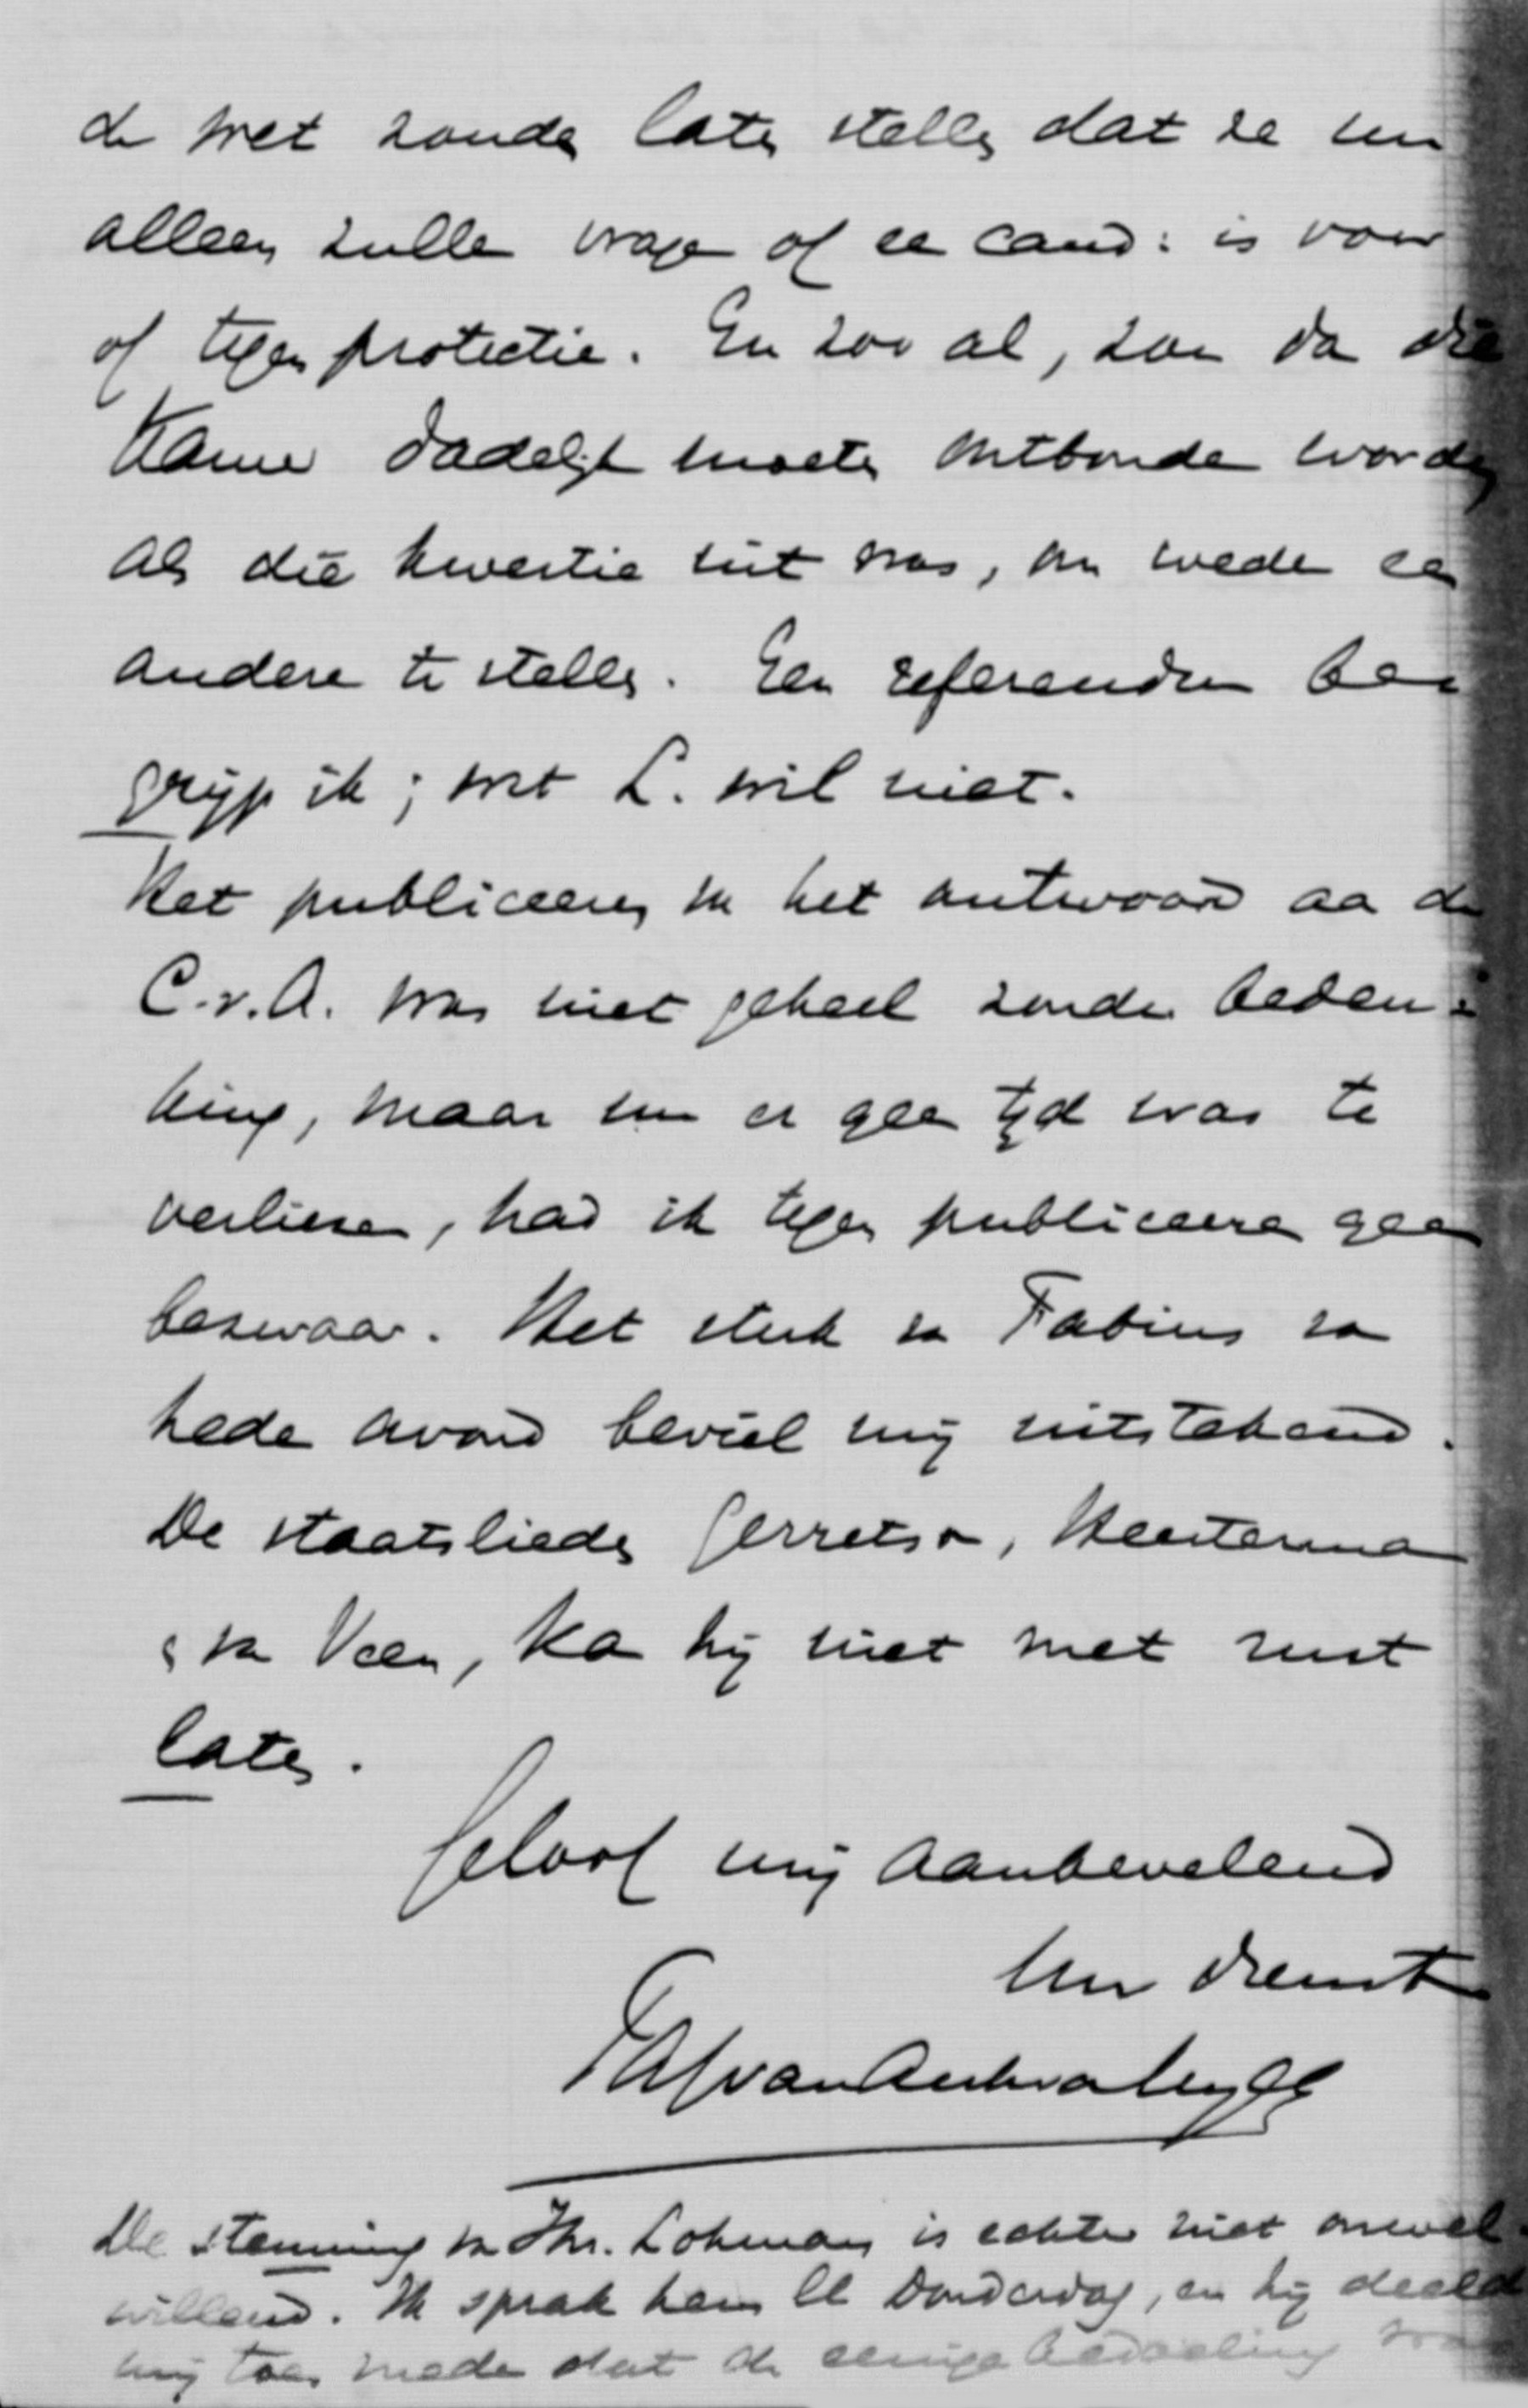 de wet zouden laten stellen dat ze nu
alleen zullen vragen of een cand: is voor
of tegen protectie. En zoo al, zou dan die
Kamer dadelijk moeten ontbonden worden
als die kwestie uit was, om weder een
andere te stellen. Een referendum be=
grijp ik; wat L. wil niet.
Het publiceeren van het antwoord aan de
C.v.A. was niet geheel zonder beden=
king, maar nu er geen tijd was te
verliezen, had ik tegen publiceeren geen
bezwaar. Het stuk van Fabius van
heden avond beviel mij uitstekend.
De staatslieden Gerretson, Heesterman
en van Veen, kan hij niet met rust
laten.
Geloof mij aanbevelend
Uw dienstv
van Asch van Wijck
De stemming van Jhr. Lohman is echter niet onwel=
willend. Ik sprak hem ll Donderdag, en hij deelde
mij toen mede dat de eenige bedoeling was